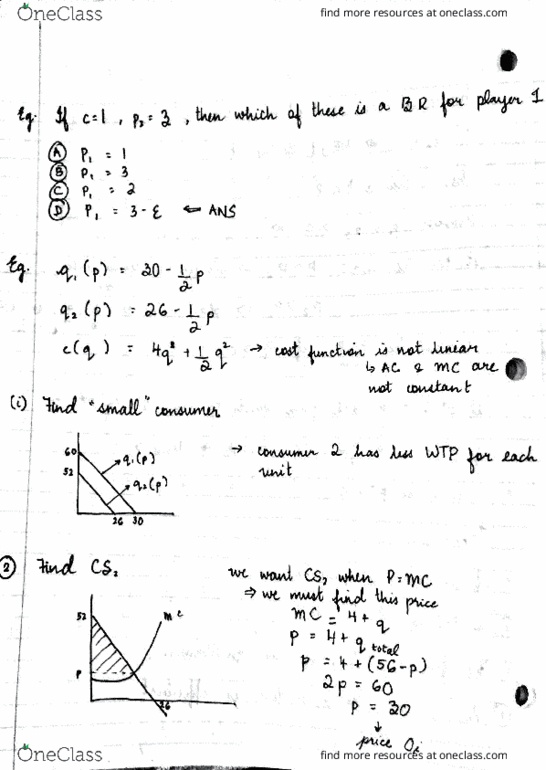 OneClass
find more resources at oneclass.com
Eg. If c=1, p₂ = 3, then which of these is a BR for player 1
A P₁ = 1
B P₁ = 3
C P₁ = 2
D P₁ = 3-ε ← ANS
Eg. q₁(p) = 30 - 1/2 p
q₂(p) = 26 - 1/2 p
c(q) = 4q + 1/2 q² → cost function is not linear
↳ AC & MC are
not constant
(i) Find "small" consumer
60
52
q₁(p)
q₂(p)
26 30
→ consumer 2 has less WTP for each
unit
② Find CS₂
52
P
MC
26
we want CS₂ when P=MC
⇒ we must find this price
MC = 4+q
P = 4+q total
P = 4+(56-p)
2p = 60
P = 30
↓
price
OneClass
find more resources at oneclass.com